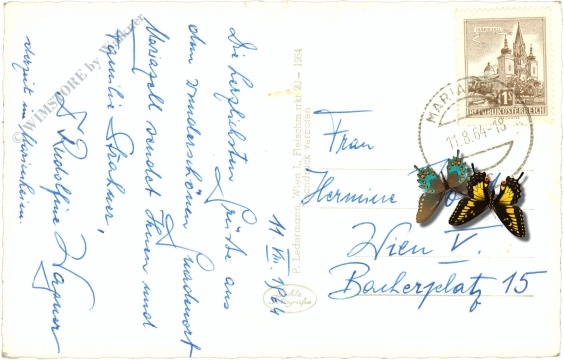 11. VIII. 1964
Die herzlichsten Grüße aus
dem wunderschönen Gnadenort
Mariazell sendet Ihnen und
Familie
Dr Rudolfine Wagner
derzeit in Marienheim.
P. Ledermann, Wien I., Fleischmarkt 20 – 1964
Nachdruck verboten
Echte
MARIAZELL
1S
REPUBLIK ÖSTERREICH
MARIAZ
11.8.64-18
Frau
Hermine
Wien V.
Bacherplatz 15
© WIMSTORE by Winkler